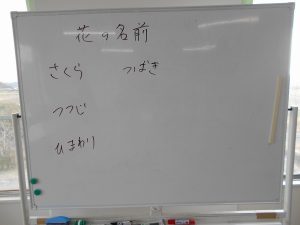 花の名前
さくら つばき
つつじ
ひまわり